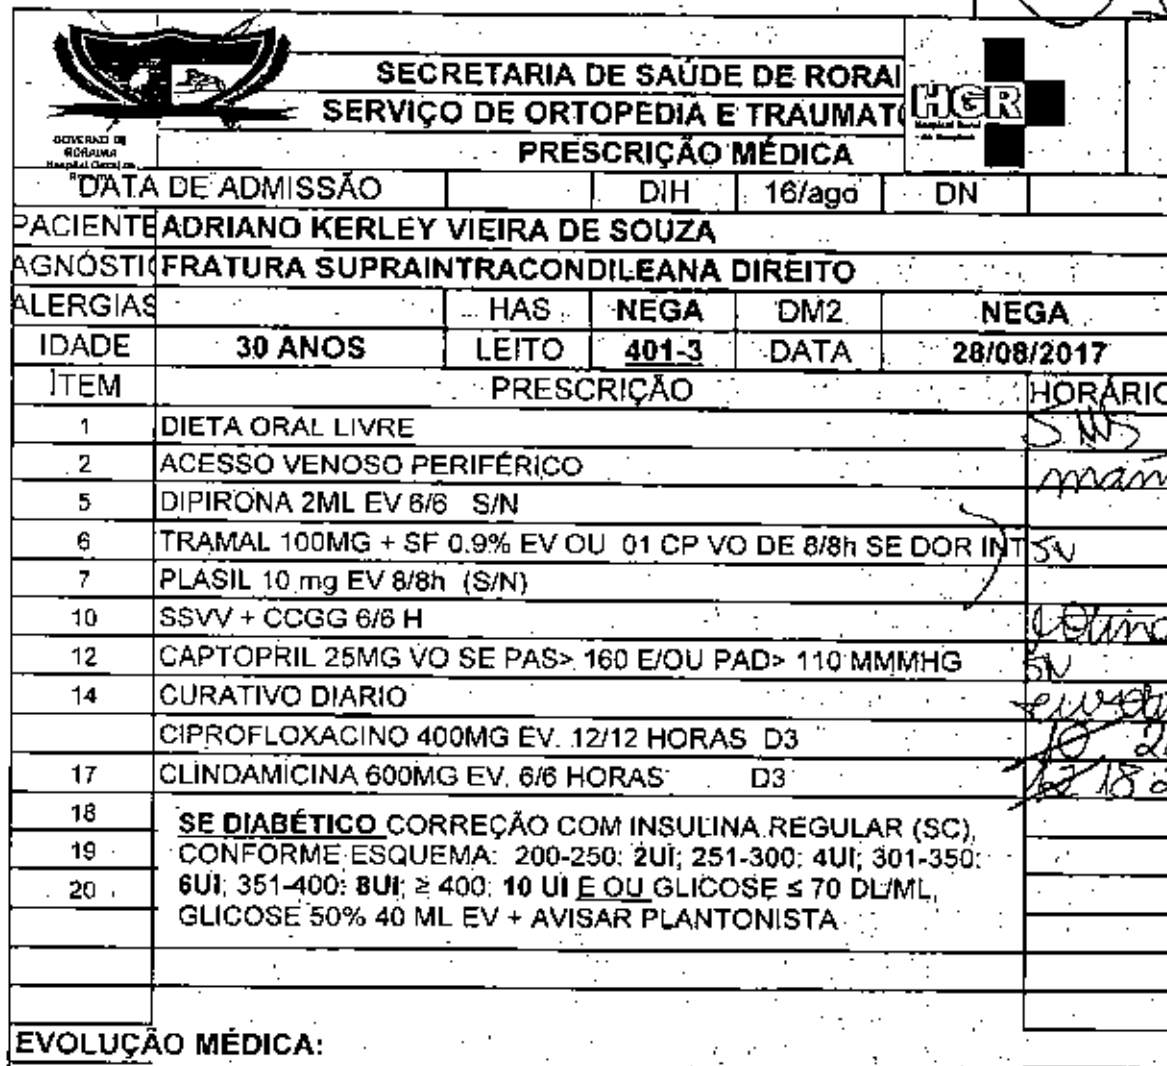 SECRETARIA DE SAÚDE DE RORAI
SERVIÇO DE ORTOPEDIA E TRAUMAT
PRESCRIÇÃO MÉDICA
HGR
GOVERNO DE
RORAIMA
DATA DE ADMISSÃO DIH 16/ago DN
PACIENTE ADRIANO KERLEY VIEIRA DE SOUZA
AGNÓSTI FRATURA SUPRAINTRACONDILEANA DIREITO
ALERGIAS HAS NEGA DM2 NEGA
IDADE 30 ANOS LEITO 401-3 DATA 28/08/2017
ITEM PRESCRIÇÃO HORÁRIO
1 DIETA ORAL LIVRE
2 ACESSO VENOSO PERIFÉRICO
5 DIPIRONA 2ML EV 6/6 S/N
6 TRAMAL 100MG + SF 0.9% EV OU 01 CP VO DE 8/8h SE DOR INT SN
7 PLASIL 10 mg EV 8/8h (S/N)
10 SSVV + CCGG 6/6 H
12 CAPTOPRIL 25MG VO SE PAS> 160 E/OU PAD> 110 MMMHG SN
14 CURATIVO DIARIO
CIPROFLOXACINO 400MG EV. 12/12 HORAS D3 10
17 CLINDAMICINA 600MG EV. 6/6 HORAS D3 12 18
18 SE DIABÉTICO CORREÇÃO COM INSULINA REGULAR (SC),
19 CONFORME ESQUEMA: 200-250: 2UI; 251-300: 4UI; 301-350:
20 6UI; 351-400: 8UI; ≥ 400: 10 UI E OU GLICOSE ≤ 70 DL/ML,
GLICOSE 50% 40 ML EV + AVISAR PLANTONISTA
EVOLUÇÃO MÉDICA: